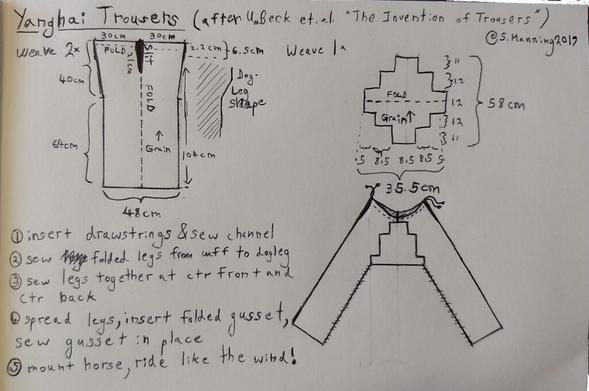 Yanghai Trousers (after U. Beck et. al "The Invention of Trousers")
@S.Manning 2019
Weave 2x
30cm 30cm
FOLD
21cm
SLIT
2.2cm
6.5cm
40cm
FOLD
Grain
64cm
104cm
48cm
Dog-
Leg
shape
Weave 1x
FOLD
Grain
11
12
12
12
11
58cm
5 8.5 8.5 8.5 5
35.5cm
① insert drawstrings & sew channel
② sew folded legs from cuff to dogleg
③ sew legs together at ctr front and
ctr back
④ spread legs, insert folded gusset,
sew gusset in place
⑤ mount horse, ride like the wind!